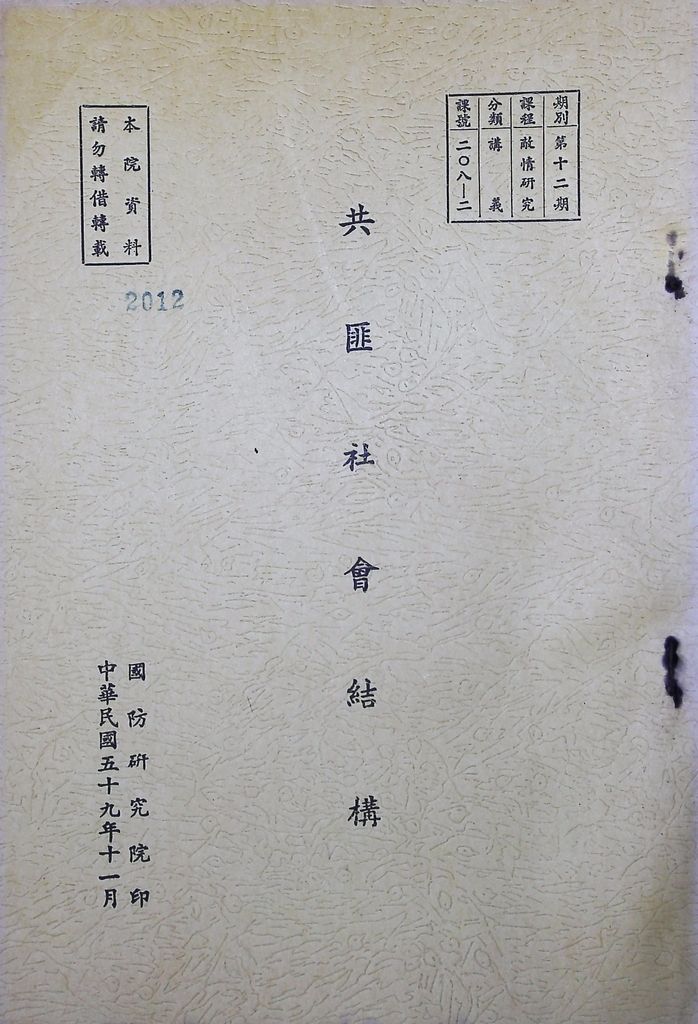 期別 第十二期
課程 敵情研究
分類 講義
課號 二〇八—二
共匪社會結構
本院資料
請勿轉借轉載
2012
國防研究院印
中華民國五十九年十一月